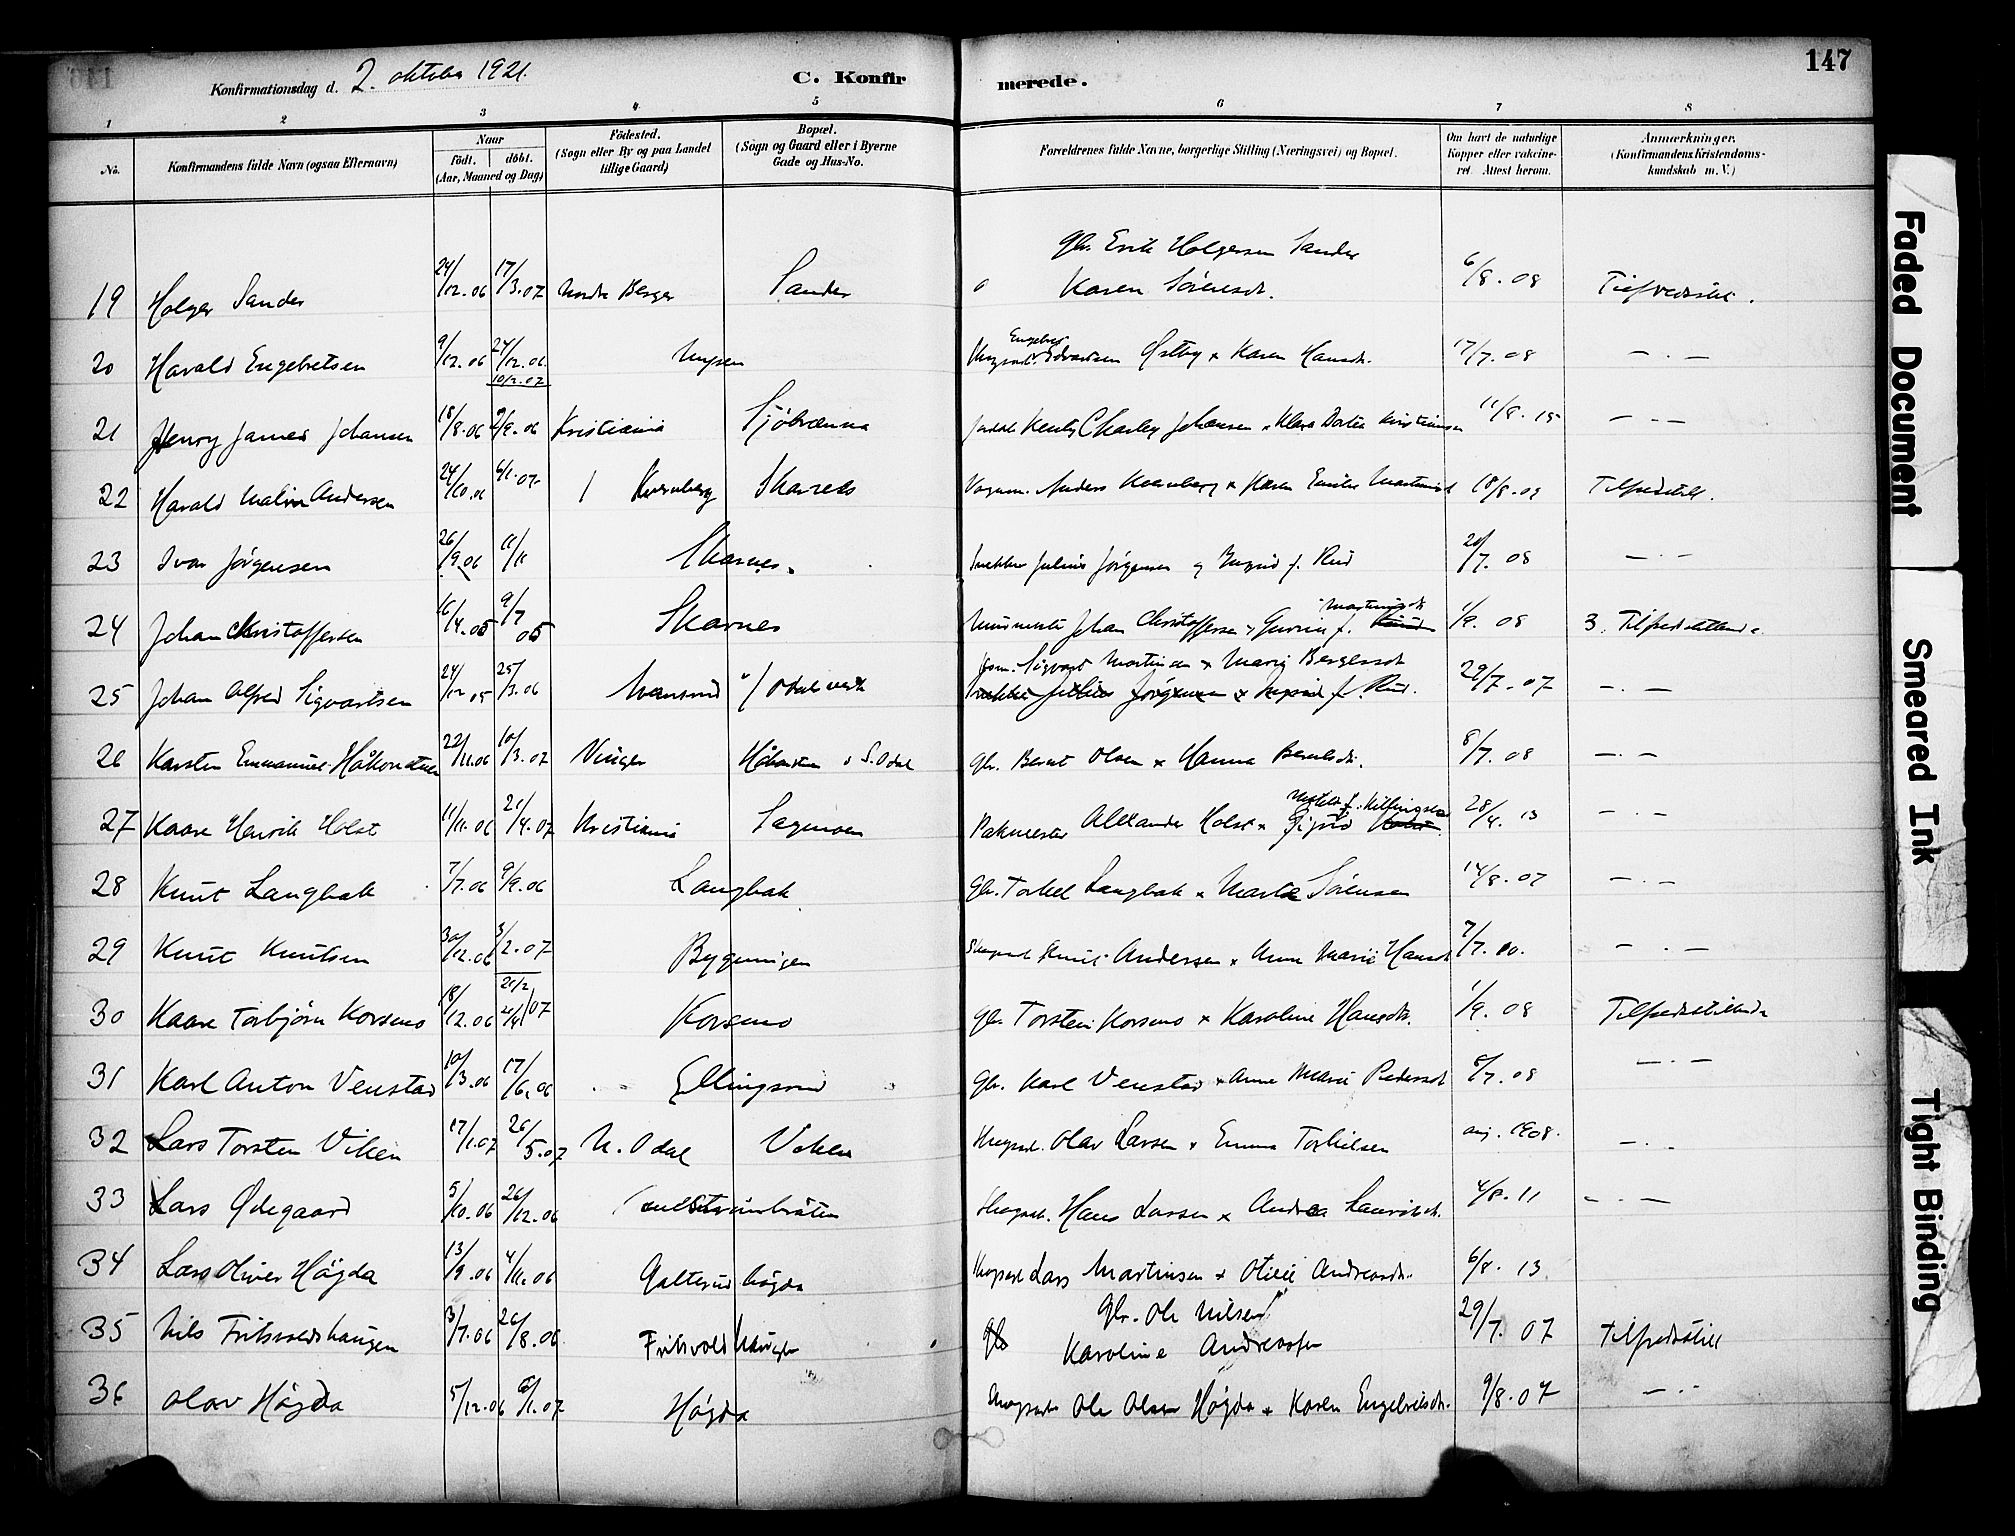 147
Konfirmationsdag d. 2. oktober 1921.
C. Konfirmerede.
1 2 3 4 5 6 7 8
No.
Konfirmandens fulde Navn (ogsaa Efternavn)
Naar
födt. döbt.
(Aar, Maaned og Dag)
Födested.
(Sogn eller By og paa Landet
tillige Gaard)
Bopæl.
(Sogn og Gaard eller i Byerne
Gade og Hus-No.
Forældrenes fulde Navne, borgerlige Stilling (Næringsvei) og Bopæl.
Om havt de naturlige
Kopper eller vakcine-
ret. Attest herom.
Anmærkninger.
(Konfirmandens Kristendoms-
kundskab m. V.)
Gbr. Erik Holgersen Sander
19 Holger Sander 24/12.06 17/3.07 Nordre Berger Sander Karen Sörensdt. 6/8.08 Tilfredsstil.
20 Harald Engebretsen 9/12.06 24/12.06 10/2.07 Edvardsen Østby x Karen Hansdt. 17/7.08 — . —
21 Henry James Johansen 18/8.06 /9.06 Kristiania Charley Johansen x Klara 11/8.15 — . —
22 Harald Malvin Andersen 24/10.06 6/1.07 Kvernberg Skarnes Anders x Karen Emilie 18/8.09 Tilfredstill.
23 Ivar Jörgensen 26/9.06 11/11 Skarnes. Julius Jörgensen og Ingrid f. Rud 20/7.08 — . —
24 Johan Christoffersen 16/4.05 9/7 05 Skarnes Johan Christoffersen x f. Martinsdt. 1/9.08 3. Tilfredsstillende.
Sigvart Martinsen x Marie Bergersdt
25 Johan Alfred Sigvartsen 24/12 05 25/3.06 Odal vestre Julius Jörgensen x Ingrid f. Rud. 29/7.07 — . —
26 Karsten Emmanuel Håkonstuen 22/11.06 10/3.07 Vinger S. Odal Gbr. Bernt Olsen x Hanna Berntsdt. 8/7.08 — . —
27 Kaare Henrik Holst 11/11.06 21/4.07 Kristiania Sagmoen Pakmester Alexander Holst x Sigrid 28/4.13 — . —
28 Knut Langbak 7/7.06 9/9.06 Langbak Gbr. Torkel Langbak x Marte Sörensen 14/8.07 — . —
29 Knut Knutsen 30/12.06 3/2.07 Bygningen Knut Andersen x Anne Marie Hansdt 7/7.10. — . —
30 Kaare Torbjörn Korsmo 18/12.06 21/2 21/4 07 Korsmo Gbr. Torstein Korsmo x Karoline Hansdt. 1/9.08 Tilfredsstillende
31 Karl Anton Venstad 10/3.06 17/6.06 Ellingsrud Gbr. Karl Venstad x Anne Marie Pedersdt 8/7.08 — . —
32 Lars Torsten Viken 17/1.07 26/5.07 N. Odal Viken Skogsarb. Olav Larsen x Emma Torkilsen aug. 1908. — . —
33 Lars Ødegaard 5/10.06 26/12.06 Skogsarb. Hans Larsen x Andrea Lauritsdt. 4/8.11 — . —
34 Lars Oliver Högda 13/9.06 4/11.06 Galterud högda Skogsarb Lars Martinsen x Otilie Andreasdt. 6/8.13
Gbr. Ole Nilsen
35 Nils Friksvoldshaugen 3/7.06 26/8.06 Friksvoldhaugen Karoline Andreasdtr 29/7.07 Tilfredsstill
36 Olav Högda 5/12.06 6/1.07 Högda Skogsarb Ole Olsen Högda x Karen Engebretsdt. 9/8.07 — . —
Faded Document
Smeared Ink
Tight Binding